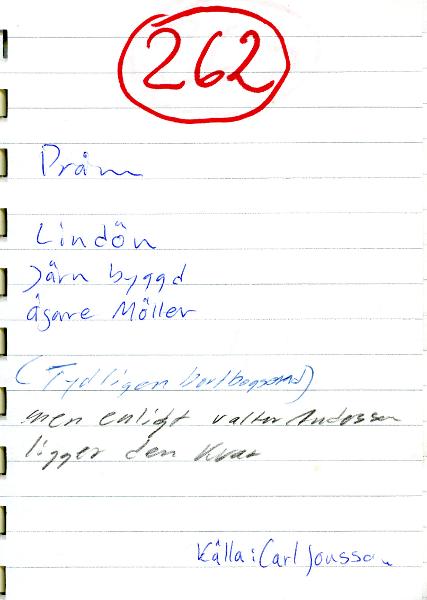 262
Pråm
Lindön
Järn byggd
ägare Möller
(Tydligen bortbogserad)
men enligt valter Andersson
ligger den kvar
Källa: Carl Jonsson